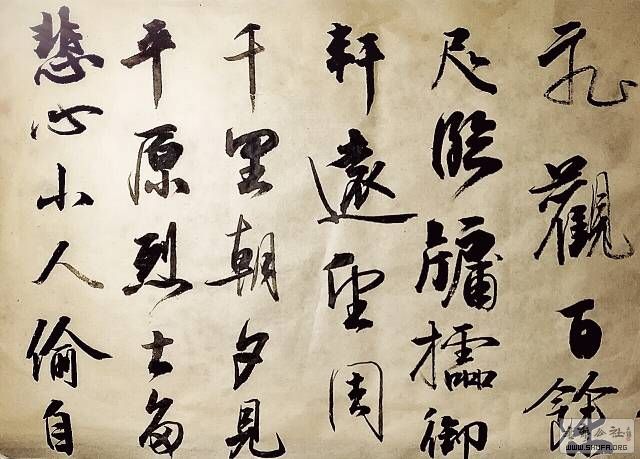 飛觀百餘
尺臨牖櫺御
軒遠望周
千里朝夕見
平原烈士多
悲心小人偷自
WWW.SHUFA.ORG